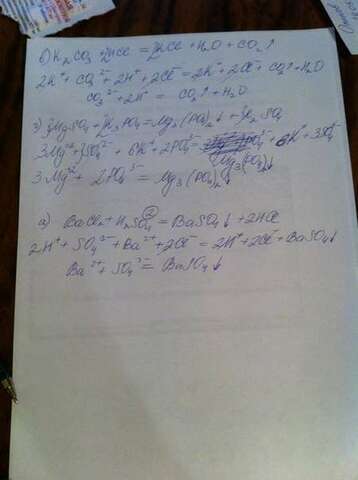 б) K₂CO₃ + 2HCl = 2KCl + H₂O + CO₂↑
2K⁺ + CO₃²⁻ + 2H⁺ + 2Cl⁻ = 2K⁺ + 2Cl⁻ + CO₂↑ + H₂O
CO₃²⁻ + 2H⁺ = CO₂↑ + H₂O
3MgSO₄ + 2H₃PO₄ = Mg₃(PO₄)₂↓ + 3H₂SO₄
3Mg²⁺ + 3SO₄²⁻ + 6H⁺ + 2PO₄³⁻ = Mg₃(PO₄)₂↓ + 6H⁺ + 3SO₄²⁻
3Mg²⁺ + 2PO₄³⁻ = Mg₃(PO₄)₂↓
а) BaCl₂ + H₂SO₄ = BaSO₄↓ + 2HCl
2H⁺ + SO₄²⁻ + Ba²⁺ + 2Cl⁻ = 2H⁺ + 2Cl⁻ + BaSO₄↓
Ba²⁺ + SO₄²⁻ = BaSO₄↓